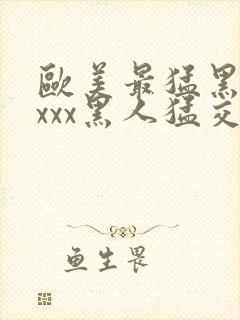 歐美最猛黑
xxx黑人猛交
鱼生畏